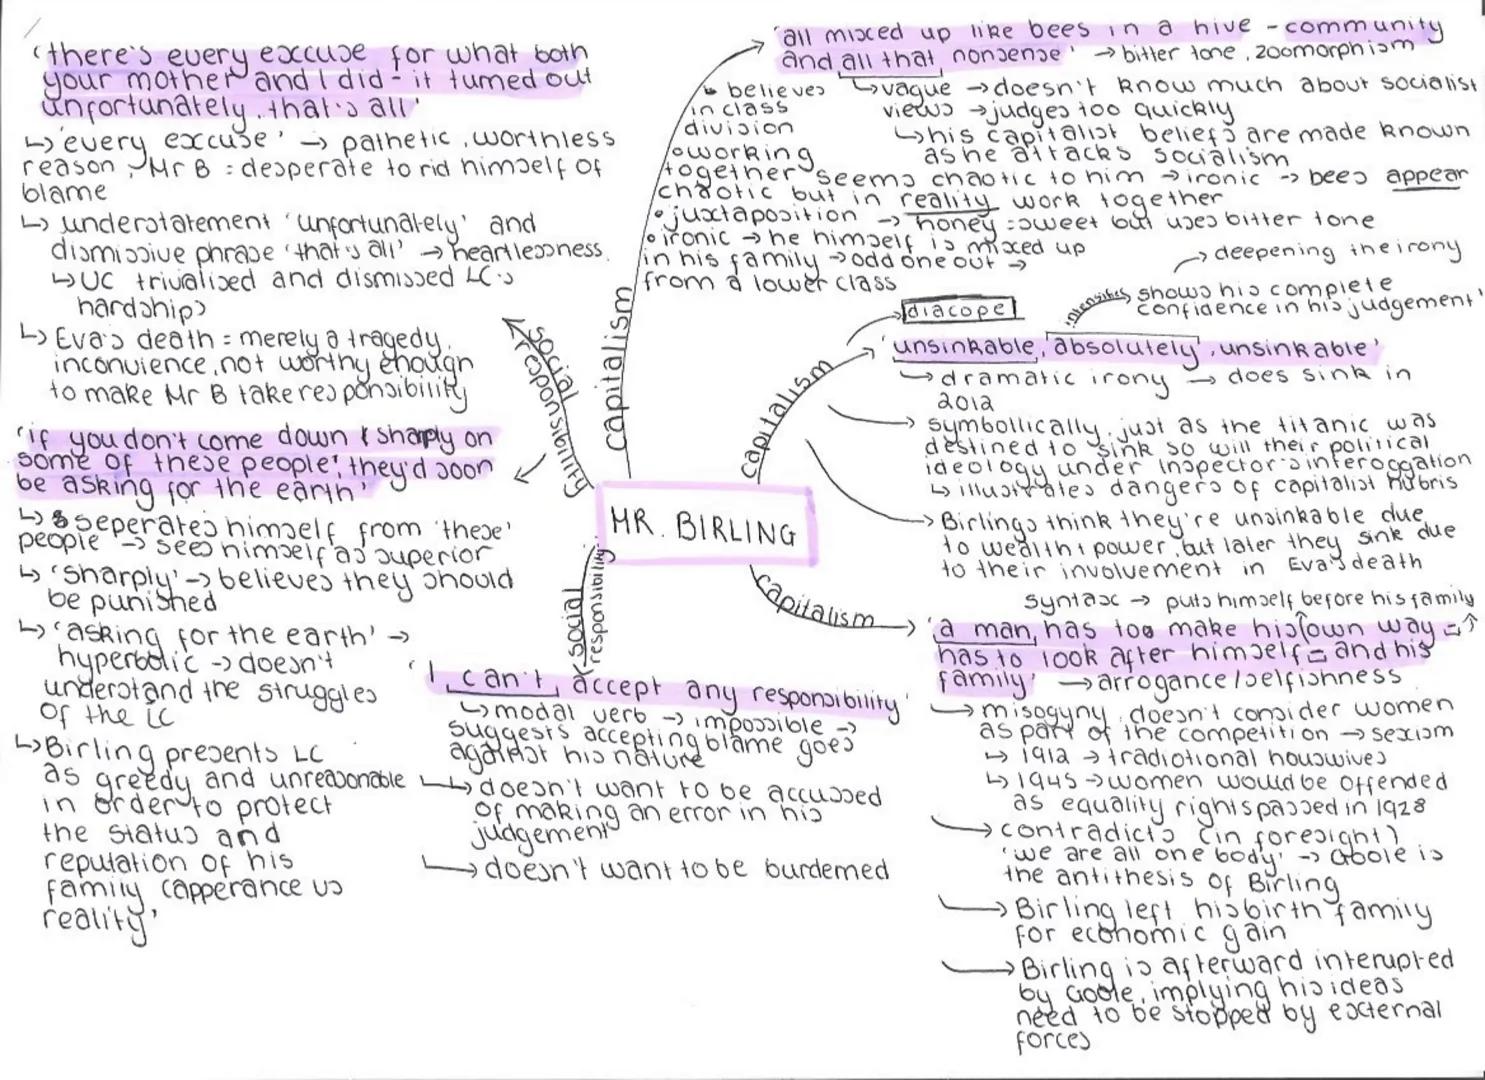 'there's every excuse for what both
your mother and I did - it turned out
unfortunately, that's all'
↳ 'every excuse' → pathetic, worthless
reason, Mr B = desperate to rid himself of
blame
↳ understatement 'unfortunately' and
dismissive phrase 'that's all' → heartlessness.
↳ UC trivialised and dismissed LC's
hardships
↳ Eva's death = merely a tragedy,
inconvience, not worthy enough
to make Mr B take responsibility
'if you don't come down sharply on
some of these people, they'd soon
be asking for the earth'
↳ seperates himself from 'these'
people → sees himself as superior
↳ 'sharply' → believes they should
be punished
↳ 'asking for the earth' →
hyperbolic → doesn't
understand the struggles
of the LC
↳ Birling presents LC
as greedy and unreasonable
in order to protect
the status and
reputation of his
family (apperance vs
reality'
social
responsibility
capitalism
'all mixed up like bees in a hive - community
and all that nonsense' → bitter tone, zoomorphism
↳ vague → doesn't know much about socialist
views → judges too quickly
↳ his capitalist beliefs are made known
as he attacks socialism
believes
in class
division
working
together seems chaotic to him → ironic → bees appear
chaotic but in reality work together
• juxtaposition → honey = sweet but uses bitter tone
• ironic → he himself is mixed up
in his family → odd one out →
from a lower class
capitalism
diacope
→ deepening the irony
intensifies shows his complete
confidence in his judgement'
'unsinkable, 'absolutely', unsinkable'
→ dramatic irony → does sink in
2012
→ symbollically, just as the titanic was
destined to sink so will their political
ideology under Inspector's interoggation
↳ illustrates dangers of capitalist hubris
→ Birlings think they're unsinkable due
to wealth + power, but later they sink due
to their involvement in Eva's death
MR. BIRLING
capitalism
syntax → puts himself before his family
'a man, has too make his own way -
has to look after himself - and his
family' → arrogance/selfishness
→ misogyny, doesn't consider women
as part of the competition → sexism
↳ 1912 → tradiotional houswives
↳ 1945 → women would be offended
as equality rights passed in 1928
→ contradicts (in foresight)
'we are all one body' → Goole is
the antithesis of Birling
→ Birling left his birth family
for economic gain
→ Birling is afterward interupted
by Goole, implying his ideas
need to be stopped by external
forces
social
responsibility
'I can't accept any responsibility'
↳ modal verb → impossible →
suggests accepting blame goes
against his nature
↳ doesn't want to be accussed
of making an error in his
judgement
→ doesn't want to be burdemed